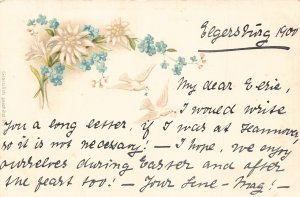 Elgersburg 1900
My dear Erie,
I would write
you a long letter, if I was at Hannover,
so it is not necessary! — I hope, we enjoy
ourselves during Easter and after
the feast too! — Your Line-Mag! —